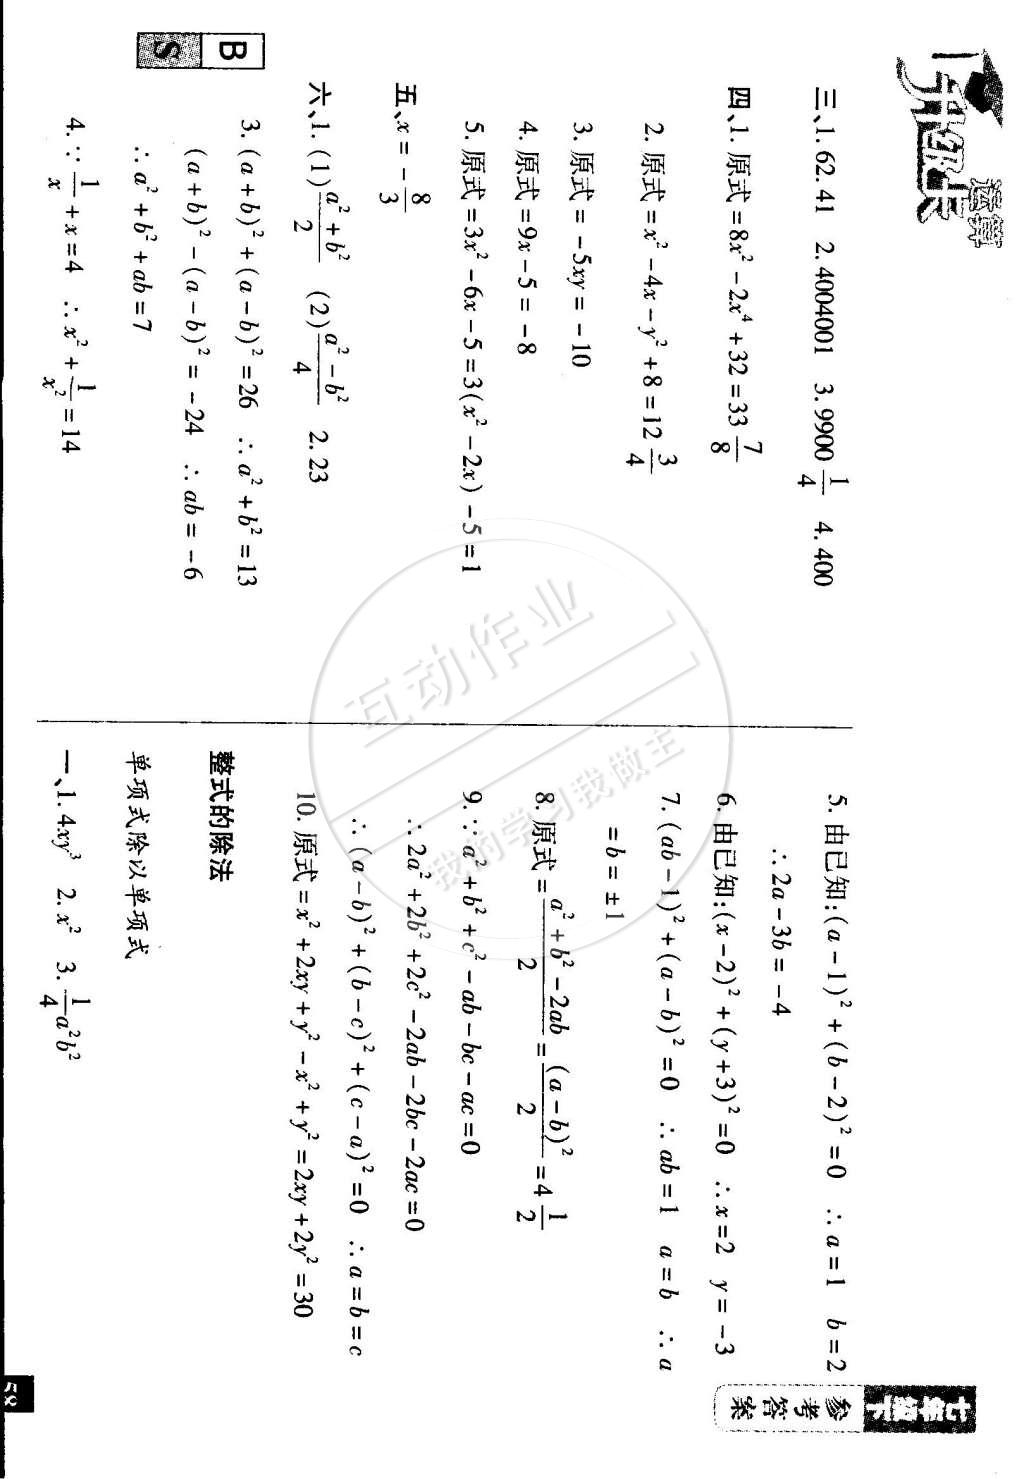 升级卡
运算
三、1. 62.41 2. 4004001 3. 9900 1/4 4. 400
四、1. 原式=8x²-2x⁴+32=33 7/8
2. 原式=x²-4x-y²+8=12 3/4
3. 原式=-5xy=-10
4. 原式=9x-5=-8
5. 原式=3x²-6x-5=3(x²-2x)-5=1
五、x=-8/3
六、1. (1) (a²+b²)/2 (2) (a²-b²)/4 2. 23
3. (a+b)²+(a-b)²=26 ∴a²+b²=13
(a+b)²-(a-b)²=-24 ∴ab=-6
∴a²+b²+ab=7
4. ∵1/x+x=4 ∴x²+1/x²=14
B
S
5. 由已知:(a-1)²+(b-2)²=0 ∴a=1 b=2
∴2a-3b=-4
6. 由已知:(x-2)²+(y+3)²=0 ∴x=2 y=-3
7. (ab-1)²+(a-b)²=0 ∴ab=1 a=b ∴a
=b=±1
8. 原式=(a²+b²-2ab)/2=(a-b)²/2=4 1/2
9. ∵a²+b²+c²-ab-bc-ac=0
∴2a²+2b²+2c²-2ab-2bc-2ac=0
∴(a-b)²+(b-c)²+(c-a)²=0 ∴a=b=c
10. 原式=x²+2xy+y²-x²+y²=2xy+2y²=30
整式的除法
单项式除以单项式
一、1. 4xy³ 2. x² 3. 1/4 a²b²
七年级下
参考答案
互动作业
我的学习我做主